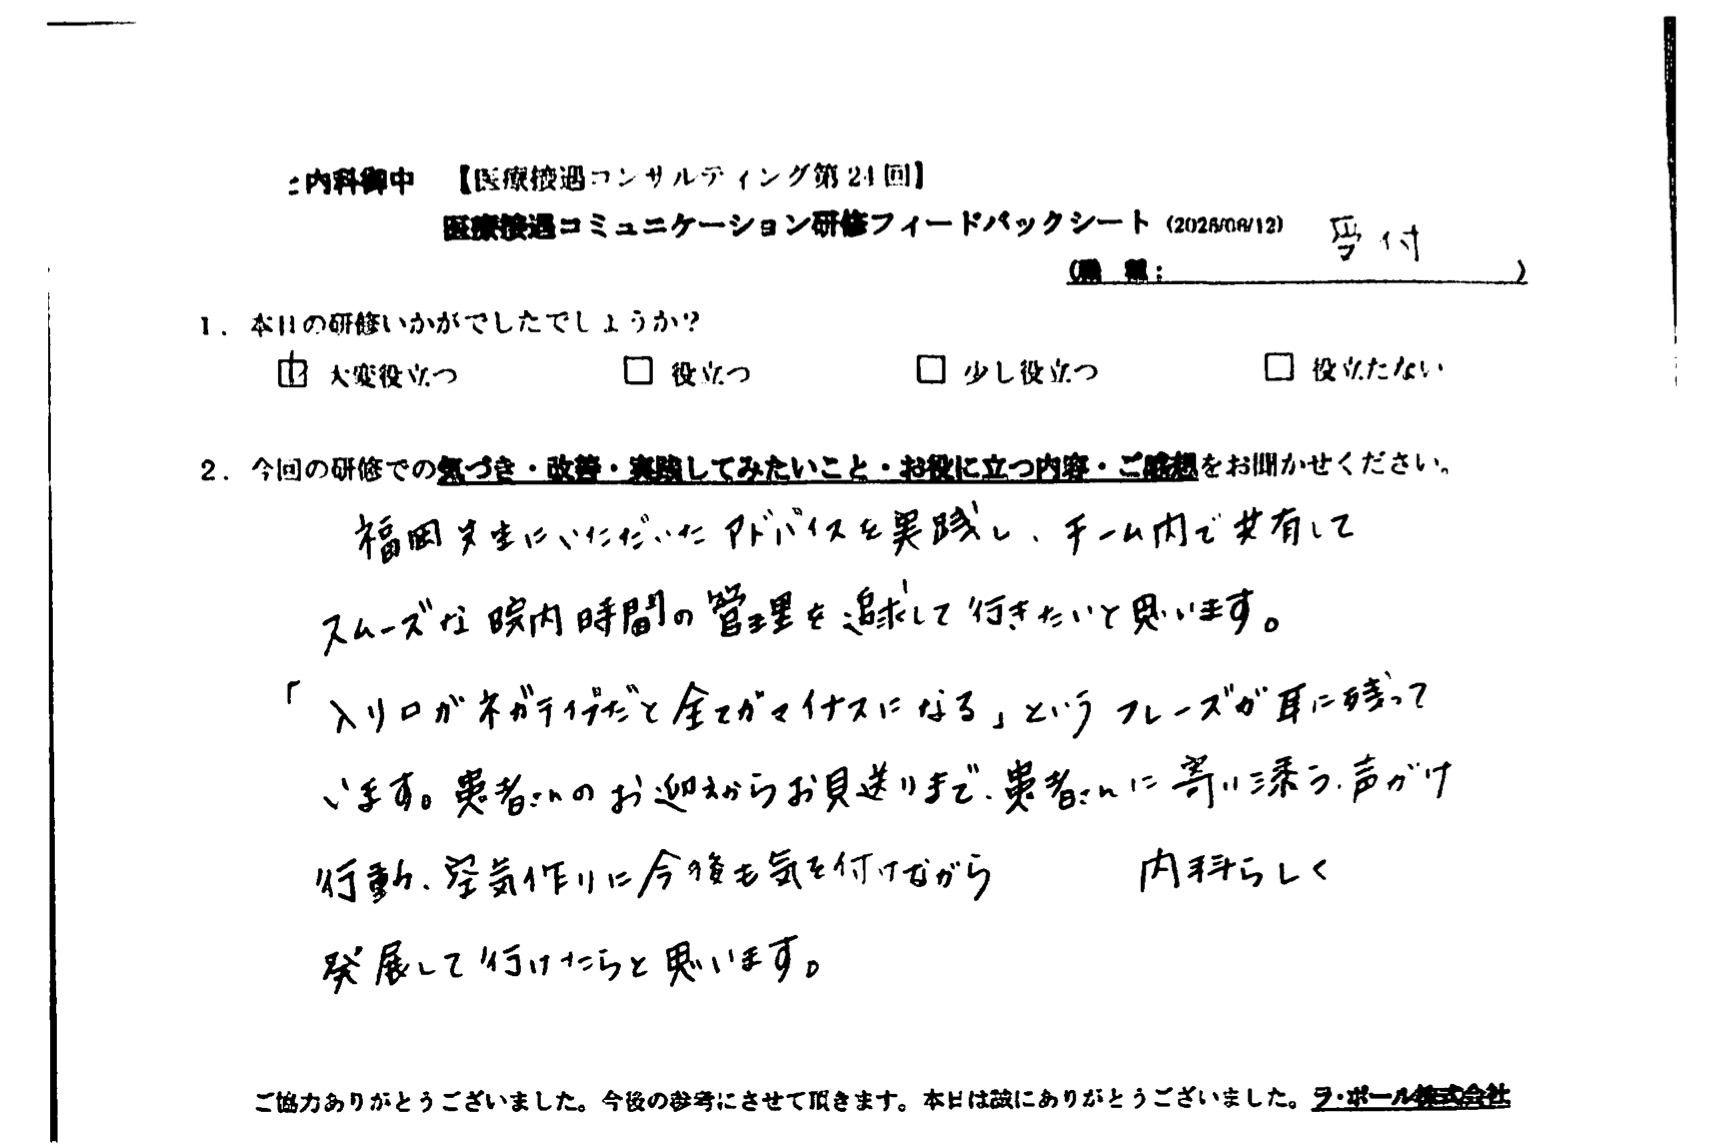 内科御中 【医療接遇コンサルティング第24回】
医療接遇コミュニケーション研修フィードバックシート (2025/08/12)
受付
(職 種: )
1. 本日の研修いかがでしたでしょうか?
大変役立つ □ 役立つ □ 少し役立つ □ 役立たない
2. 今回の研修での気づき・改善・実践してみたいこと・お役に立つ内容・ご感想をお聞かせください。
福岡先生にいただいたアドバイスを実践し、チーム内で共有して
スムーズな院内時間の管理を追求して行きたいと思います。
「入り口がネガティブだと全てがマイナスになる」というフレーズが耳に残って
います。患者さんのお迎えからお見送りまで、患者さんに寄り添う、声がけ
行動、空気作りに今後も気を付けながら 内科らしく
発展して行けたらと思います。
ご協力ありがとうございました。今後の参考にさせて頂きます。本日は誠にありがとうございました。ラ・ポール株式会社